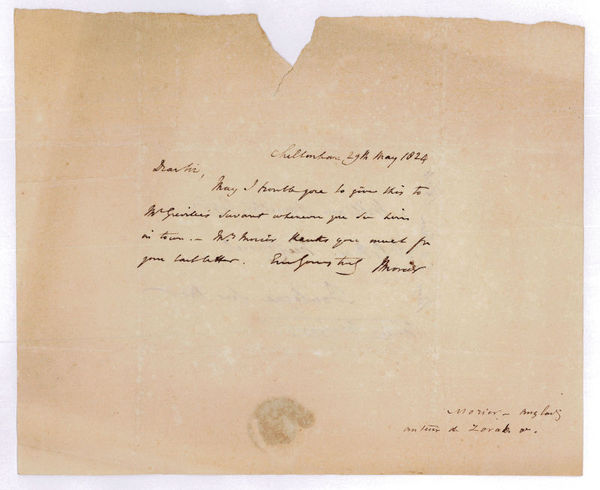 Cheltenham 29th May 1824
Dear Sir,
May I trouble you to give this to
Mr Greville's servant whenever you see him
in town. – Mrs Morier thanks you much for
your last letter. Ever Yours truly JMorier
Morier – Anglais
auteur de Zorab